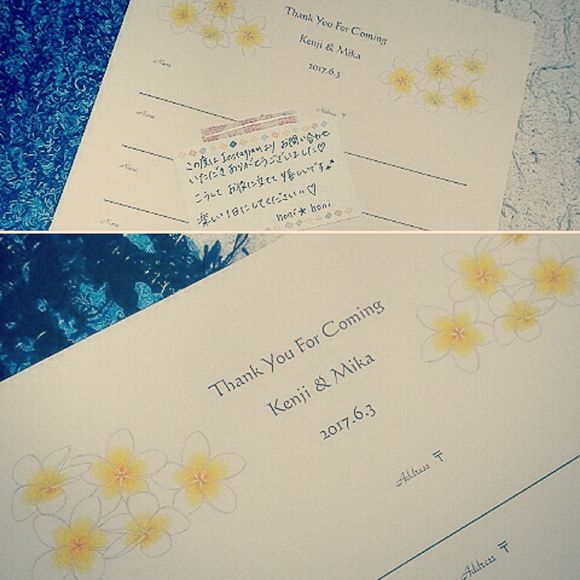 Thank You For Coming
Kenji & Mika
2017.6.3
Name
Address 〒
Name
Name
この度は Instagramより お問い合わせ
いただき ありがとうございました♡
こうして お役に立てて 嬉しいです
楽しい1日にしてくださいね♡
honi★honi
Thank You For Coming
Kenji & Mika
2017.6.3
Address 〒
Address 〒